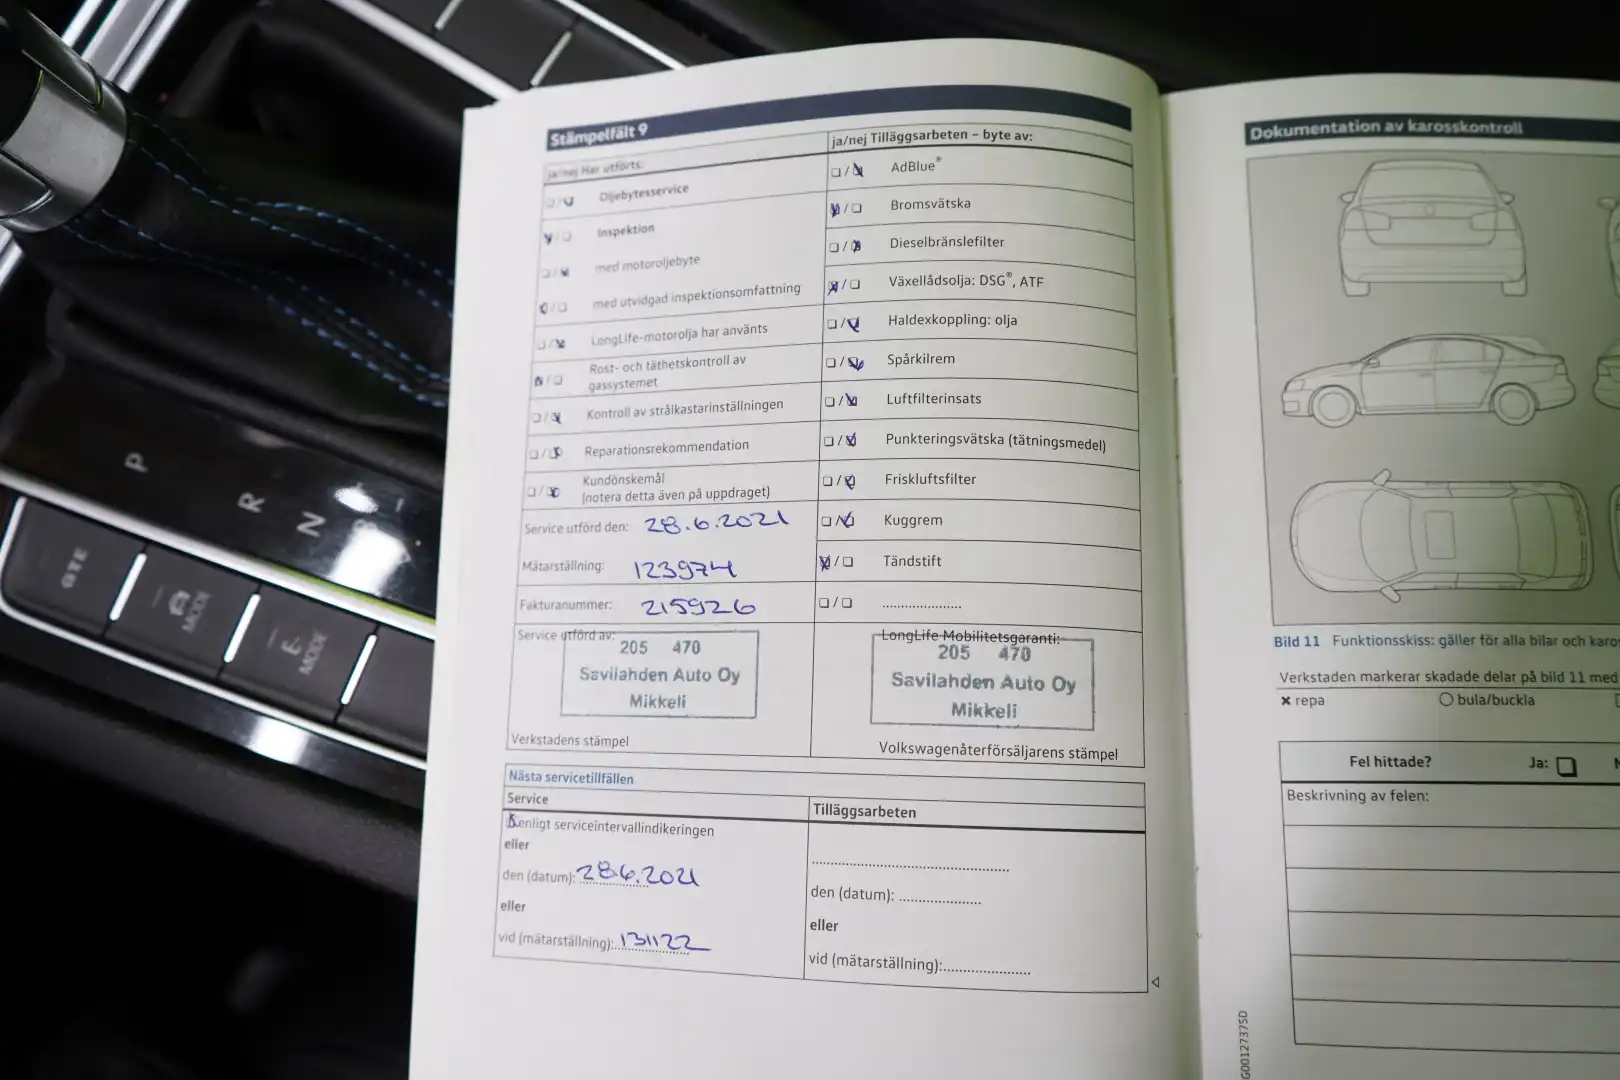 Stämpelfält 9
ja/nej Har utförts:
☐/☑ Oljebytesservice
☑/☐ Inspektion
☐/☑ med motoroljebyte
☑/☐ med utvidgad inspektionsomfattning
☐/☑ LongLife-motorolja har använts
☑/☐ Rost- och täthetskontroll av
gassystemet
☐/☑ Kontroll av strålkastarinställningen
☐/☑ Reparationsrekommendation
☐/☑ Kundönskemål
(notera detta även på uppdraget)
Service utförd den: 28.6.2021
Mätarställning: 123974
Fakturanummer: 215926
Service utförd av:
205 470
Savilahden Auto Oy
Mikkeli
Verkstadens stämpel
ja/nej Tilläggsarbeten – byte av:
☐/☑ AdBlue®
☑/☐ Bromsvätska
☐/☑ Dieselbränslefilter
☑/☐ Växellådsolja: DSG®, ATF
☐/☑ Haldexkoppling: olja
☐/☑ Spårkilrem
☐/☑ Luftfilterinsats
☐/☑ Punkteringsvätska (tätningsmedel)
☐/☑ Friskluftsfilter
☐/☑ Kuggrem
☑/☐ Tändstift
☐/☐ ....................
LongLife Mobilitetsgaranti:
205 470
Savilahden Auto Oy
Mikkeli
Volkswagenåterförsäljarens stämpel
Nästa servicetillfällen
Service
☑ enligt serviceintervallindikeringen
eller
den (datum): 28.6.2021
eller
vid (mätarställning): 131122
Tilläggsarbeten
den (datum): ....................
eller
vid (mätarställning): ....................
Dokumentation av karosskontroll
Bild 11 Funktionsskiss: gäller för alla bilar och
Verkstaden markerar skadade delar på bild 11 med
× repa ○ bula/buckla
Fel hittade? Ja: ☐
Beskrivning av felen:
G0012737SD
P
R
N
GTE
MODE
E-MODE